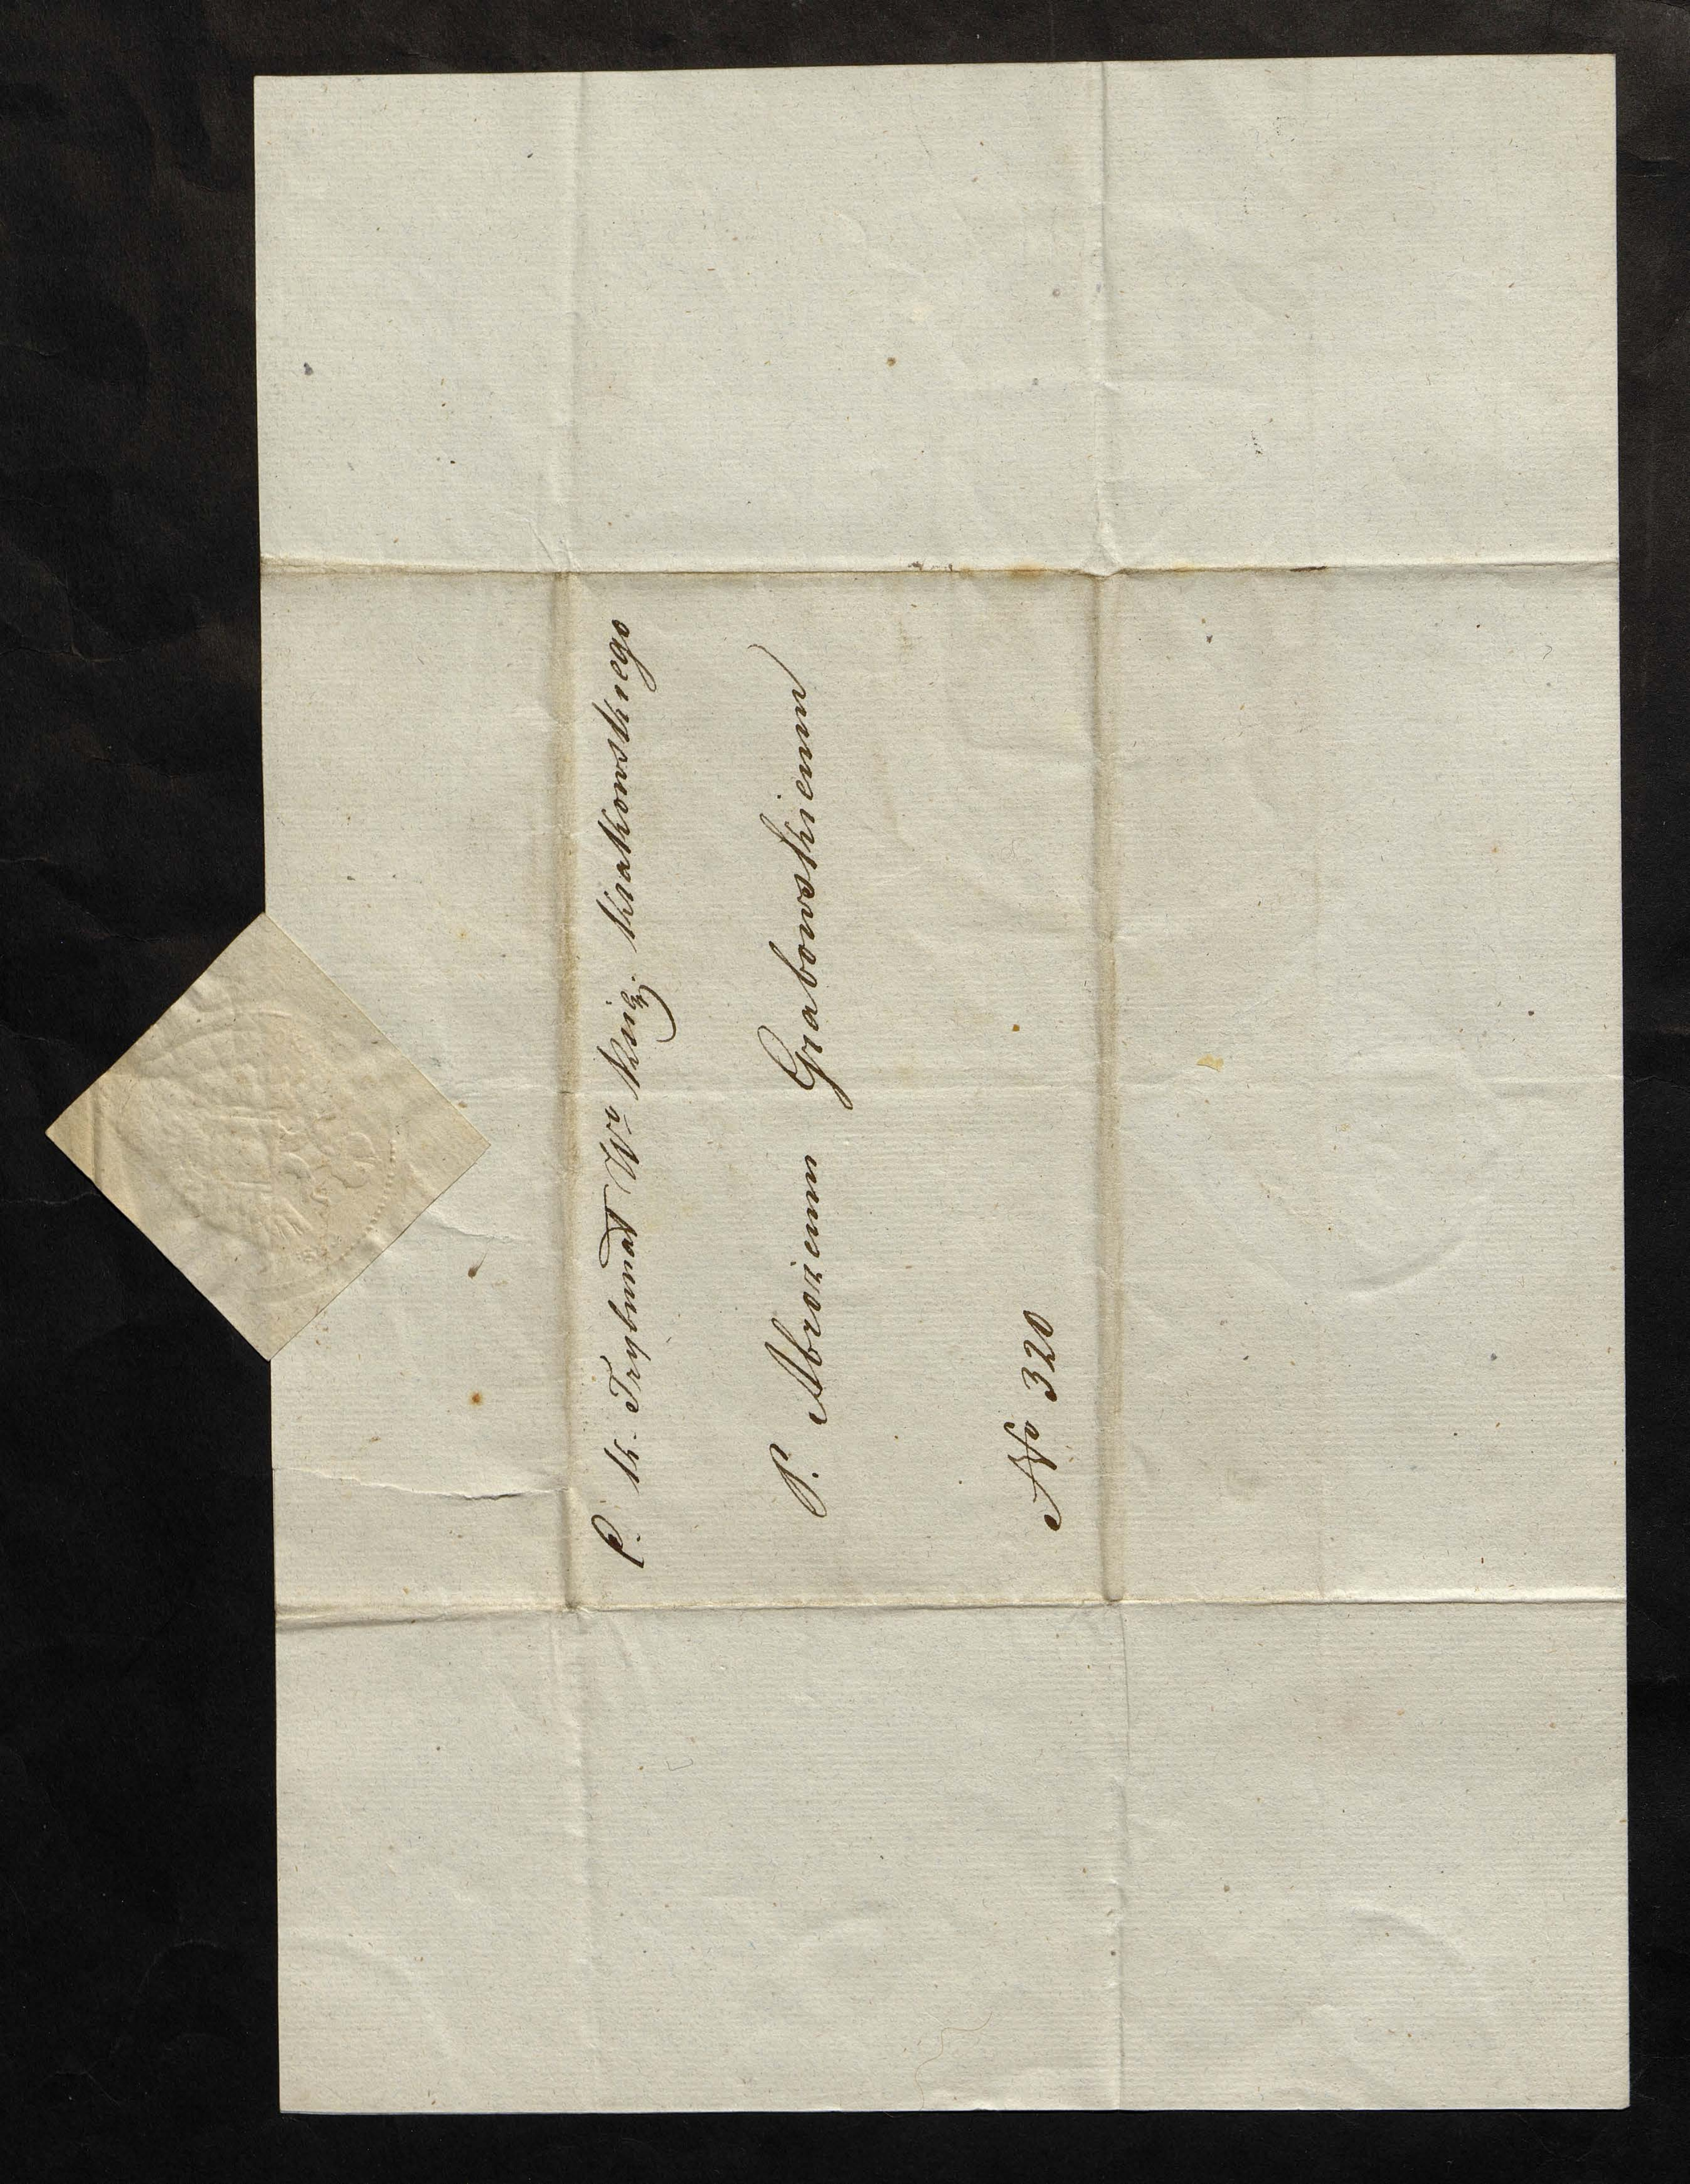 P. K. Trybunał Wo Księż. Krakowskiego
P. Ambrożemu Grabowskiemu
No 320